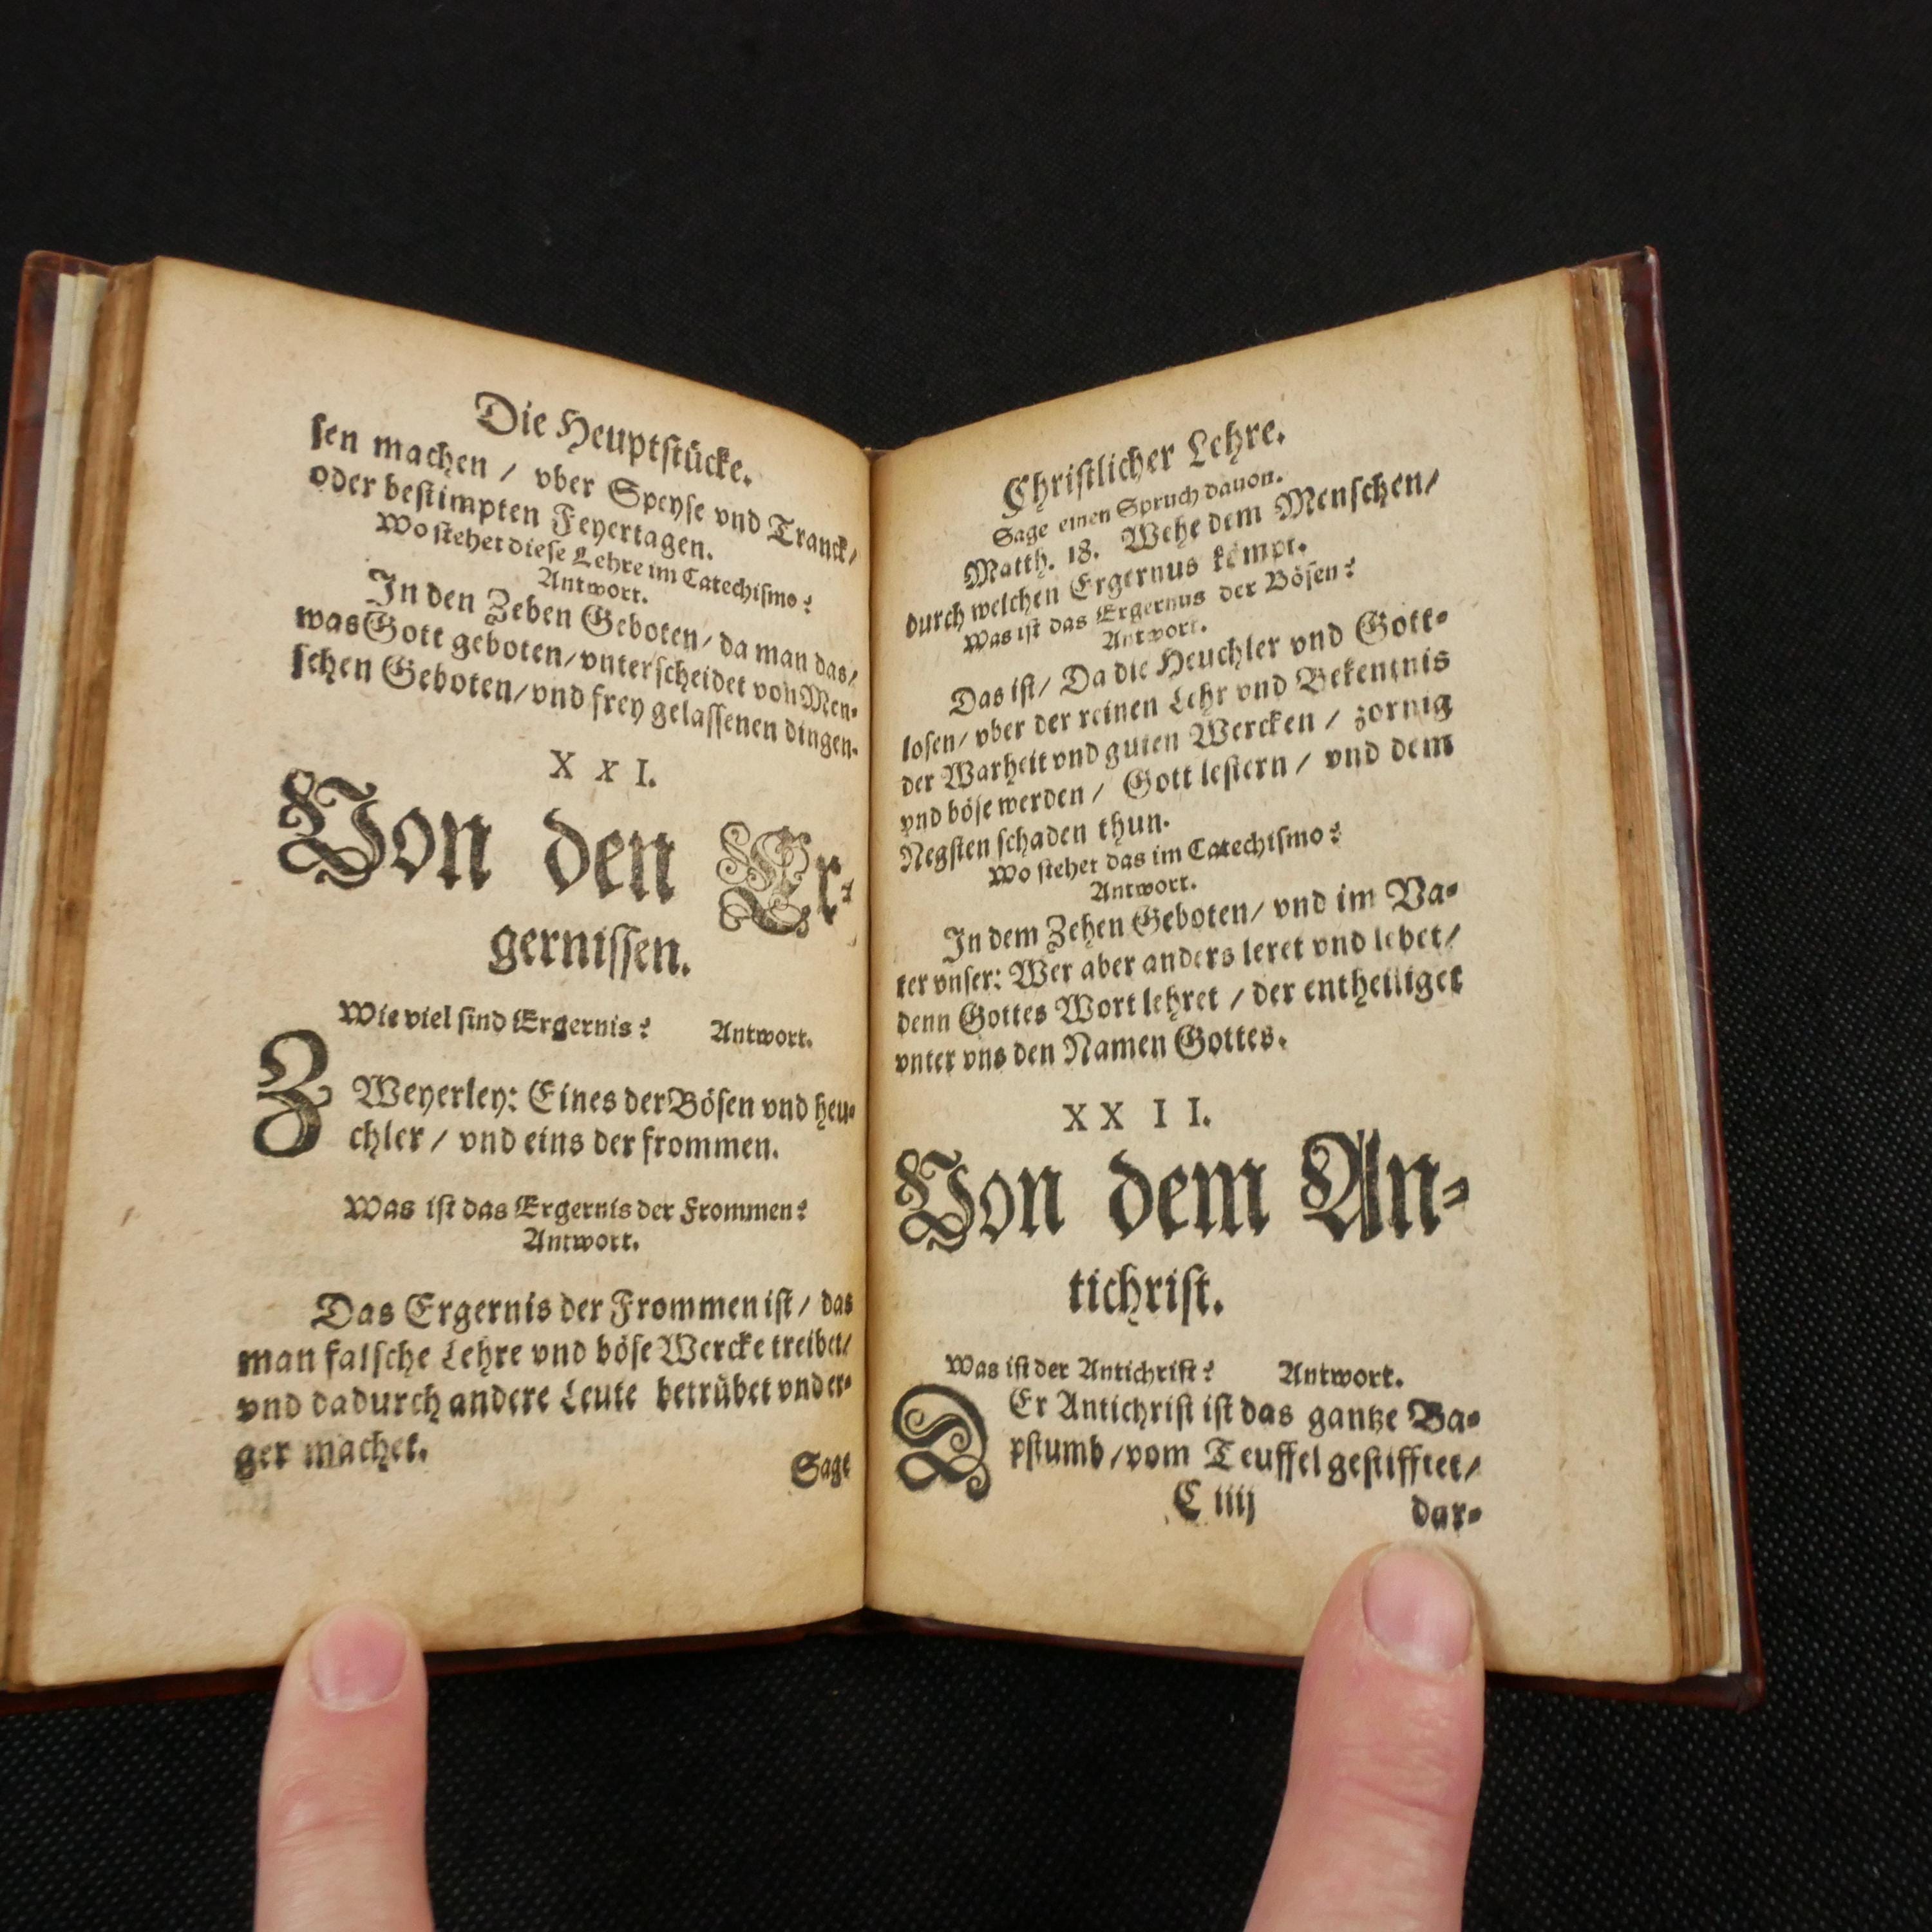 Die Heuptstücke.
sen machen / vber Speyse vnd Tranck /
oder bestimpten Feyertagen.
Wo stehet diese Lehre im Catechismo?
Antwort.
In den Zehen Geboten / da man das /
was Gott geboten / vnterscheidet von Men-
schen Geboten / vnd frey gelassenen dingen.
XXI.
Von den Er-
gernissen.
Wie viel sind Ergernis? Antwort.
ZWeyerley: Eines der Bösen vnd heu-
chler / vnd eins der frommen.
Was ist das Ergernis der Frommen?
Antwort.
Das Ergernis der Frommen ist / das
man falsche Lehre vnd böse Wercke treibet /
vnd dadurch andere Leute betrübet vnd er-
ger machet.
Sage
Christlicher Lehre.
Sage einen Spruch dauon.
Matth. 18. Wehe dem Menschen /
durch welchen Ergernus kömpt.
Was ist das Ergernus der Bösen?
Antwort.
Das ist / Da die Heuchler vnd Gott-
losen / vber der reinen Lehr vnd Bekentnis
der Warheit vnd guten Wercken / zornig
vnd böse werden / Gott lestern / vnd dem
Negsten schaden thun.
Wo stehet das im Catechismo?
Antwort.
In dem Zehen Geboten / vnd im Va-
ter vnser: Wer aber anders leret vnd lebet /
denn Gottes Wort lehret / der entheiliget
vnter vns den Namen Gottes.
XXII.
Von dem An-
tichrist.
Was ist der Antichrist? Antwort.
DEr Antichrist ist das gantze Ba-
pstumb / vom Teuffel gestifftet /
C iiij
dar-